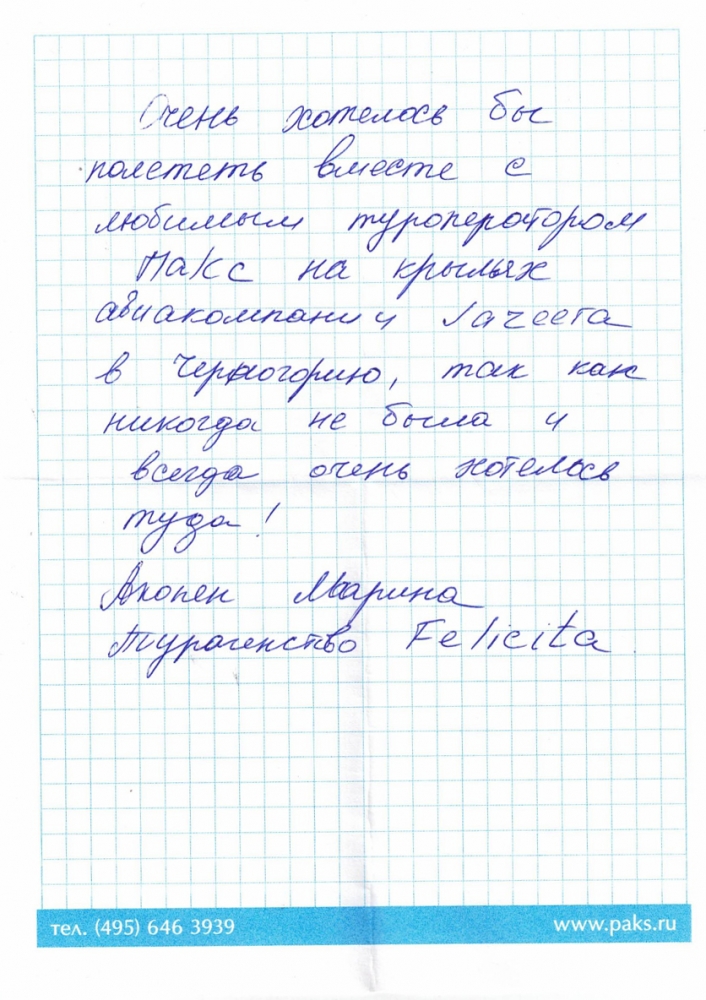 Очень хотелось бы
полететь вместе с
любимым туроператором
Пакс на крыльях
авиакомпании Jazeera
в Черногорию, так как
никогда не была и
всегда очень хотелось
туда!
Акопен Марина
Турагенство Felicita
тел. (495) 646 3939
www.paks.ru